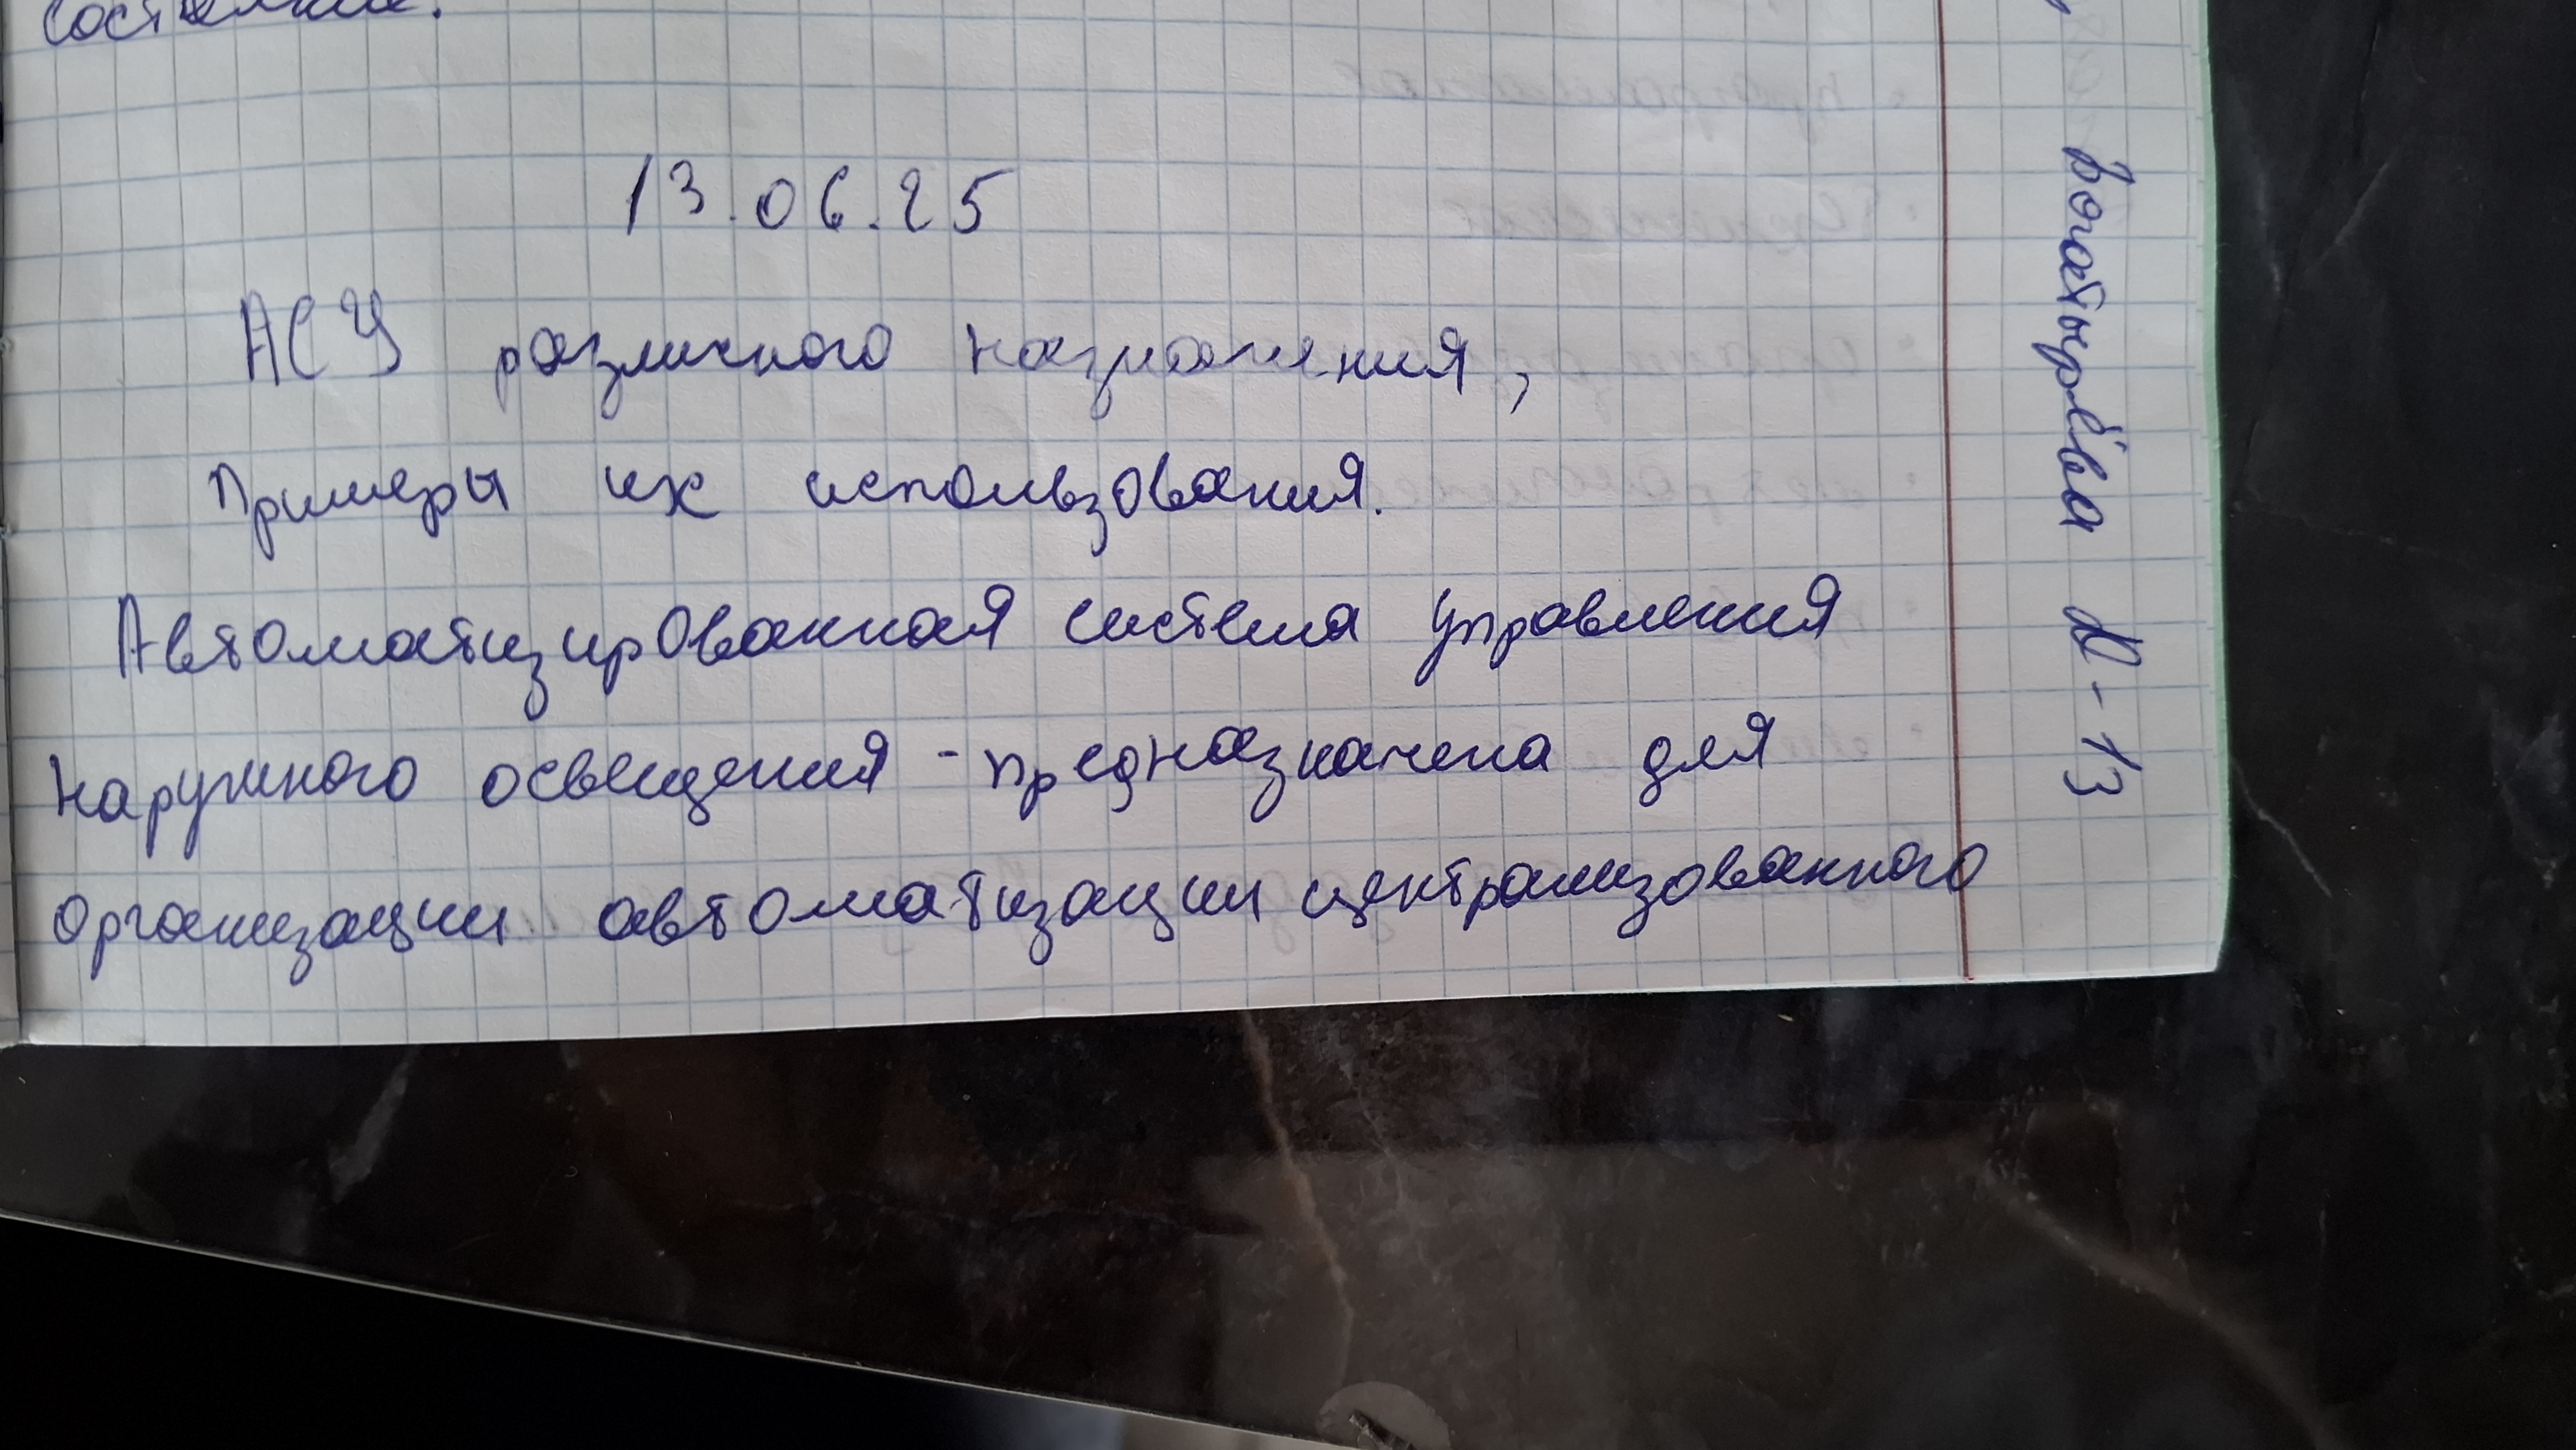 13.06.25
АСУ различного назначения,
Примеры их использования.
Автоматизированная система управления
наружного освещения - предназначена для
организации автоматизации централизованного
Богатырёва Д-13